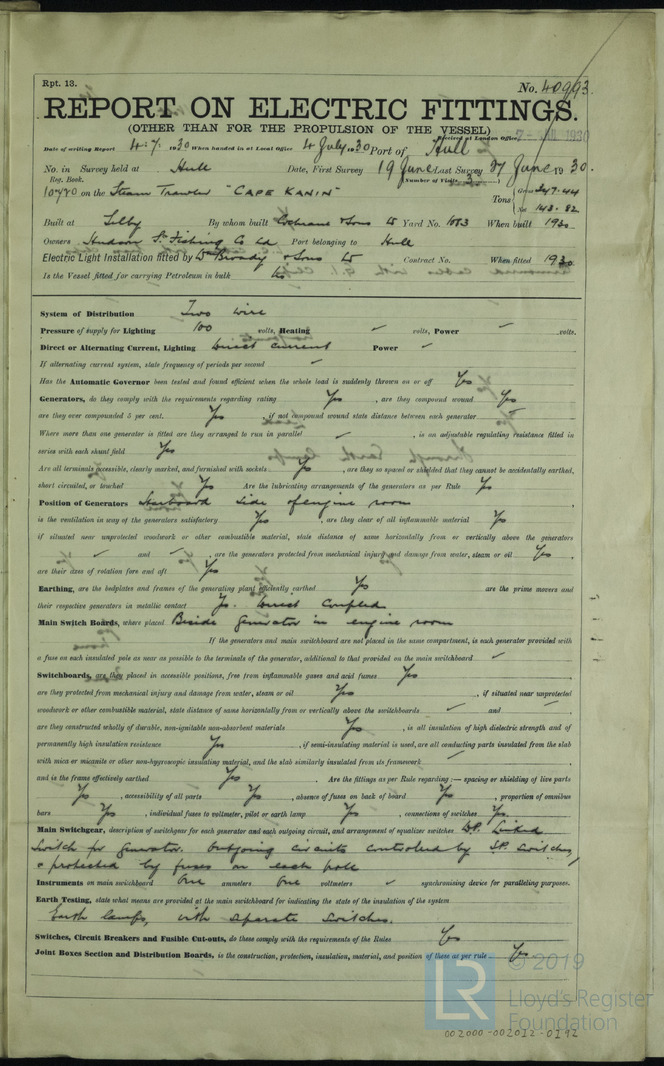 Rpt. 13.
No. 40993.
REPORT ON ELECTRIC FITTINGS.
(OTHER THAN FOR THE PROPULSION OF THE VESSEL)
Received at London Office 7 - JUL 1930
Date of writing Report 4.7.1930 When handed in at Local Office 4 July 1930 Port of Hull
No. in Survey held at Hull Date, First Survey 19 June Last Survey 27 June 1930.
Reg. Book. (Number of Visits 3)
10780 on the Steam Trawler "CAPE KANIN" Tons { Gross 347.44
Net 143.82
Built at Selby By whom built Cochrane & Sons Ld Yard No. 1083 When built 1930
Owners Hudson Fishing Co Ld Port belonging to Hull
Electric Light Installation fitted by Wm Broady & Sons Ld Contract No. When fitted 1930
Is the Vessel fitted for carrying Petroleum in bulk No
System of Distribution Two wire
Pressure of supply for Lighting 100 volts, Heating ✓ volts, Power ✓ volts.
Direct or Alternating Current, Lighting Direct current Power ✓
If alternating current system, state frequency of periods per second ✓
Has the Automatic Governor been tested and found efficient when the whole load is suddenly thrown on or off Yes
Generators, do they comply with the requirements regarding rating Yes, are they compound wound Yes
are they over compounded 5 per cent. Yes, if not compound wound state distance between each generator ✓
Where more than one generator is fitted are they arranged to run in parallel ✓, is an adjustable regulating resistance fitted in
series with each shunt field Yes
Are all terminals accessible, clearly marked, and furnished with sockets Yes, are they so spaced or shielded that they cannot be accidentally earthed,
short circuited, or touched Yes Are the lubricating arrangements of the generators as per Rule Yes
Position of Generators Starboard side of engine room
is the ventilation in way of the generators satisfactory Yes, are they clear of all inflammable material Yes
if situated near unprotected woodwork or other combustible material, state distance of same horizontally from or vertically above the generators
✓ and ✓, are the generators protected from mechanical injury and damage from water, steam or oil Yes,
are their axes of rotation fore and aft Yes
Earthing, are the bedplates and frames of the generating plant efficiently earthed Yes are the prime movers and
their respective generators in metallic contact Yes. Direct Coupled
Main Switch Boards, where placed Beside generator in engine room
If the generators and main switchboard are not placed in the same compartment, is each generator provided with
a fuse on each insulated pole as near as possible to the terminals of the generator, additional to that provided on the main switchboard ✓
Switchboards, are they placed in accessible positions, free from inflammable gases and acid fumes Yes
are they protected from mechanical injury and damage from water, steam or oil Yes, if situated near unprotected
woodwork or other combustible material, state distance of same horizontally from or vertically above the switchboards ✓ and ✓
are they constructed wholly of durable, non-ignitable non-absorbent materials Yes, is all insulation of high dielectric strength and of
permanently high insulation resistance Yes, if semi-insulating material is used, are all conducting parts insulated from the slab
with mica or micanite or other non-hygroscopic insulating material, and the slab similarly insulated from its framework ✓,
and is the frame effectively earthed Yes. Are the fittings as per Rule regarding :— spacing or shielding of live parts
Yes, accessibility of all parts Yes, absence of fuses on back of board Yes, proportion of omnibus
bars Yes, individual fuses to voltmeter, pilot or earth lamp Yes, connections of switches Yes.
Main Switchgear, description of switchgear for each generator and each outgoing circuit, and arrangement of equalizer switches DP. Linked
switch for generator. Outgoing circuits controlled by SP. switches,
& protected by fuses on each pole
Instruments on main switchboard One ammeters One voltmeters ✓ synchronising device for paralleling purposes.
Earth Testing, state what means are provided at the main switchboard for indicating the state of the insulation of the system
Earth lamps, with separate switches.
Switches, Circuit Breakers and Fusible Cut-outs, do these comply with the requirements of the Rules Yes
Joint Boxes Section and Distribution Boards, is the construction, protection, insulation, material, and position of these as per rule Yes
LR © 2019
Lloyd's Register
Foundation
002000-002012-0192